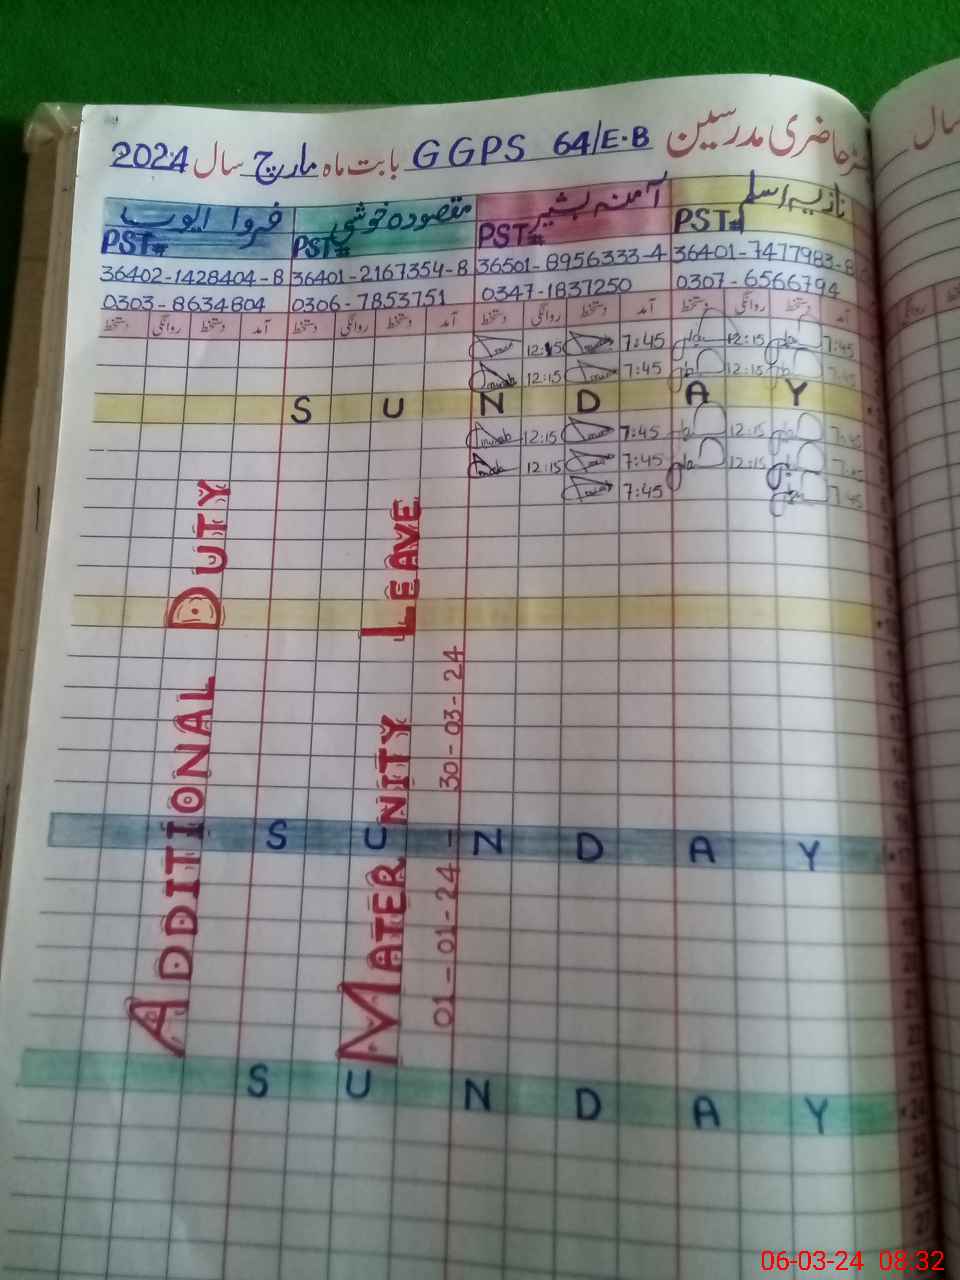 حاضری مدرسین GGPS 64/E.B بابت ماہ مارچ سال 2024
نازیہ اسلم آمنہ بشیر مقصودہ خوشی فروا ایوب
PST# PST# PST# PST#
36401-7477983-8 36501-8956333-4 36401-2167354-8 36402-1428404-8
0307-6566794 0347-1837250 0306-7853751 0303-8634804
آمد دستخط روانگی دستخط آمد دستخط روانگی دستخط آمد دستخط روانگی دستخط آمد دستخط روانگی دستخط
7:45 12:15 7:45 12:15
7:45 12:15 7:45 12:15
SUNDAY
7:45 12:15 7:45 12:15
7:45 12:15 7:45 12:15
7:45 7:45
SUNDAY
SUNDAY
ADDITIONAL DUTY
MATERNITY LEAVE
01-01-24 – 30-03-24
سال
روانگی
06-03-24 08:32